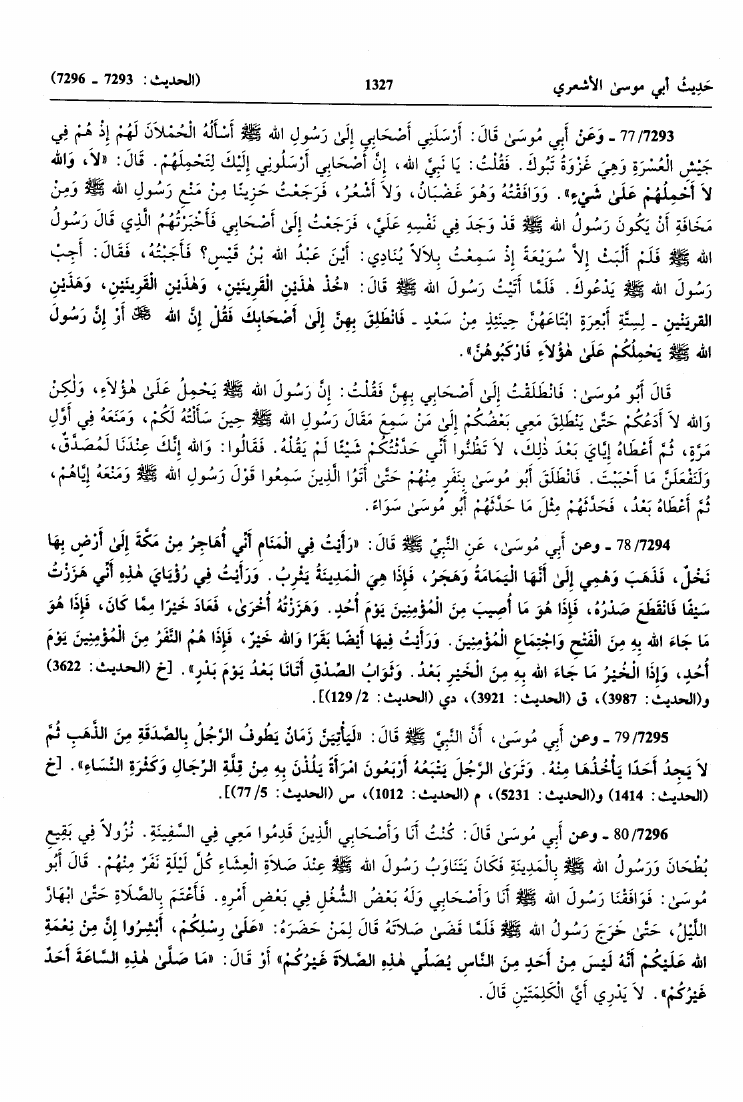 حَدِيثُ أبي موسىٰ الأشعري 1327 (الحديث: 7293 ـ 7296)
77/7293 ـ وَعَنْ أبي مُوسَىٰ قَالَ: أَرْسَلَنِي أَصْحَابِي إِلَىٰ رَسُولِ الله ﷺ أَسْأَلُهُ الْحُمْلاَنَ لَهُمْ إِذْ هُمْ فِي
جَيْشِ الْعُسْرَةِ وَهِيَ غَزْوَةُ تَبُوكَ. فَقُلْتُ: يَا نَبِيَّ الله، إِنَّ أَصْحَابِي أَرْسَلُونِي إِلَيْكَ لِتَحْمِلَهُمْ. قَالَ: «لاَ، وَالله
لاَ أَحْمِلُهُمْ عَلَىٰ شَيْءٍ». وَوَافَقْتُهُ وَهُوَ غَضْبَانُ، وَلاَ أَشْعُرُ، فَرَجَعْتُ حَزِينًا مِنْ مَنْعِ رَسُولِ الله ﷺ وَمِنْ
مَخَافَةِ أَنْ يَكُونَ رَسُولُ الله ﷺ قَدْ وَجَدَ فِي نَفْسِهِ عَلَيَّ، فَرَجَعْتُ إِلَىٰ أَصْحَابِي فَأَخْبَرْتُهُمُ الَّذِي قَالَ رَسُولُ
الله ﷺ فَلَمْ أَلْبَثْ إِلاَّ سُوَيْعَةً إِذْ سَمِعْتُ بِلاَلاً يُنَادِي: أَيْنَ عَبْدُ الله بْنُ قَيْسٍ؟ فَأَجَبْتُهُ، فَقَالَ: أَجِبْ
رَسُولَ الله ﷺ يَدْعُوكَ. فَلَمَّا أَتَيْتُ رَسُولَ الله ﷺ قَالَ: «خُذْ هٰذَيْنِ الْقَرِينَيْنِ، وَهٰذَيْنِ الْقَرِينَيْنِ، وَهٰذَيْنِ
القرينَيْنِ ـ لِسِتَّةِ أَبْعِرَةٍ ابْتَاعَهُنَّ حِينَئِذٍ مِنْ سَعْدٍ ـ فَانْطَلِقْ بِهِنَّ إِلَىٰ أَصْحَابِكَ فَقُلْ إِنَّ الله ﷻ أَوْ إِنَّ رَسُولَ
الله ﷺ يَحْمِلُكُمْ عَلَىٰ هٰؤُلاَءِ فَارْكَبُوهُنَّ».
قَالَ أَبُو مُوسَىٰ: فَانْطَلَقْتُ إِلَىٰ أَصْحَابِي بِهِنَّ فَقُلْتُ: إِنَّ رَسُولَ الله ﷺ يَحْمِلُ عَلَىٰ هٰؤُلاَءِ، وَلٰكِنْ
وَالله لاَ أَدَعُكُمْ حَتَّىٰ يَنْطَلِقَ مَعِي بَعْضُكُمْ إِلَىٰ مَنْ سَمِعَ مَقَالَ رَسُولِ الله ﷺ حِينَ سَأَلْتُهُ لَكُمْ، وَمَنَعَهُ فِي أَوَّلِ
مَرَّةٍ، ثُمَّ أَعْطَاهُ إِيَّايَ بَعْدَ ذٰلِكَ، لاَ تَظُنُّوا أَنِّي حَدَّثْتُكُمْ شَيْئًا لَمْ يَقُلْهُ. فَقَالُوا: وَالله إِنَّكَ عِنْدَنَا لَمُصَدَّقٌ،
وَلَنَفْعَلَنَّ مَا أَحْبَبْتَ. فَانْطَلَقَ أَبُو مُوسَىٰ بِنَفَرٍ مِنْهُمْ حَتَّىٰ أَتَوُا الَّذِينَ سَمِعُوا قَوْلَ رَسُولِ الله ﷺ وَمَنْعَهُ إِيَّاهُمْ،
ثُمَّ أَعْطَاهُ بَعْدُ، فَحَدَّثَهُمْ مِثْلَ مَا حَدَّثَهُمْ أَبُو مُوسَىٰ سَوَاءً.
78/7294 ـ وعن أبي مُوسَىٰ، عَنِ النَّبِيِّ ﷺ قَالَ: «رَأَيْتُ فِي الْمَنَامِ أَنِّي أُهَاجِرُ مِنْ مَكَّةَ إِلَىٰ أَرْضٍ بِهَا
نَخْلٌ، فَذَهَبَ وَهْمِي إِلَىٰ أَنَّهَا الْيَمَامَةُ وَهَجَرُ، فَإِذَا هِيَ الْمَدِينَةُ يَثْرِبُ. وَرَأَيْتُ فِي رُؤْيَايَ هٰذِهِ أَنِّي هَزَزْتُ
سَيْفًا فَانْقَطَعَ صَدْرُهُ، فَإِذَا هُوَ مَا أُصِيبَ مِنَ الْمُؤْمِنِينَ يَوْمَ أُحُدٍ. وَهَزَزْتُهُ أُخْرَىٰ، فَعَادَ خَيْرًا مِمَّا كَانَ، فَإِذَا هُوَ
مَا جَاءَ الله بِهِ مِنَ الْفَتْحِ وَاجْتِمَاعِ الْمُؤْمِنِينَ. وَرَأَيْتُ فِيهَا أَيْضًا بَقَرًا وَالله خَيْرٌ، فَإِذَا هُمُ النَّفَرُ مِنَ الْمُؤْمِنِينَ يَوْمَ
أُحُدٍ، وَإِذَا الْخَيْرُ مَا جَاءَ الله بِهِ مِنَ الْخَيْرِ بَعْدُ. وَثَوَابُ الصِّدْقِ أَتَانَا بَعْدُ يَوْمَ بَدْرٍ». [خ (الحديث: 3622)
و(الحديث: 3987)، ق (الحديث: 3921)، دي (الحديث: 2/ 129)].
79/7295 ـ وعن أبي مُوسَى، أَنَّ النَّبِيَّ ﷺ قَالَ: «لَيَأْتِيَنَّ زَمَانٌ يَطُوفُ الرَّجُلُ بِالصَّدَقَةِ مِنَ الذَّهَبِ ثُمَّ
لاَ يَجِدُ أَحَدًا يَأْخُذُهَا مِنْهُ. وَتَرَىٰ الرَّجُلَ يَتْبَعُهُ أَرْبَعُونَ امْرَأَةً يَلُذْنَ بِهِ مِنْ قِلَّةِ الرِّجَالِ وَكَثْرَةِ النِّسَاءِ». [خ
(الحديث: 1414) و(الحديث: 5231)، م (الحديث: 1012)، س (الحديث: 5/ 77)].
80/7296 ـ وعن أبي مُوسَىٰ قَالَ: كُنْتُ أَنَا وَأَصْحَابِي الَّذِينَ قَدِمُوا مَعِي فِي السَّفِينَةِ. نُزُولاً فِي بَقِيعِ
بُطْحَانَ وَرَسُولُ الله ﷺ بِالْمَدِينَةِ فَكَانَ يَتَنَاوَبُ رَسُولَ الله ﷺ عِنْدَ صَلاَةِ الْعِشَاءِ كُلَّ لَيْلَةٍ نَفَرٌ مِنْهُمْ. قَالَ أَبُو
مُوسَىٰ: فَوَافَقْنَا رَسُولَ الله ﷺ أَنَا وَأَصْحَابِي وَلَهُ بَعْضُ الشُّغُلِ فِي بَعْضِ أَمْرِهِ. فَأَعْتَمَ بِالصَّلاَةِ حَتَّىٰ ابْهَارَّ
اللَّيْلُ، حَتَّىٰ خَرَجَ رَسُولُ الله ﷺ فَلَمَّا قَضَىٰ صَلاَتَهُ قَالَ لِمَنْ حَضَرَهُ: «عَلَىٰ رِسْلِكُمْ، أَبْشِرُوا إِنَّ مِنْ نِعْمَةِ
الله عَلَيْكُمْ أَنَّهُ لَيْسَ مِنْ أَحَدٍ مِنَ النَّاسِ يُصَلِّي هٰذِهِ الصَّلاَةَ غَيْرُكُمْ» أَوْ قَالَ: «مَا صَلَّىٰ هٰذِهِ السَّاعَةَ أَحَدٌ
غَيْرُكُمْ». لاَ يَدْرِي أَيَّ الْكَلِمَتَيْنِ قَالَ.